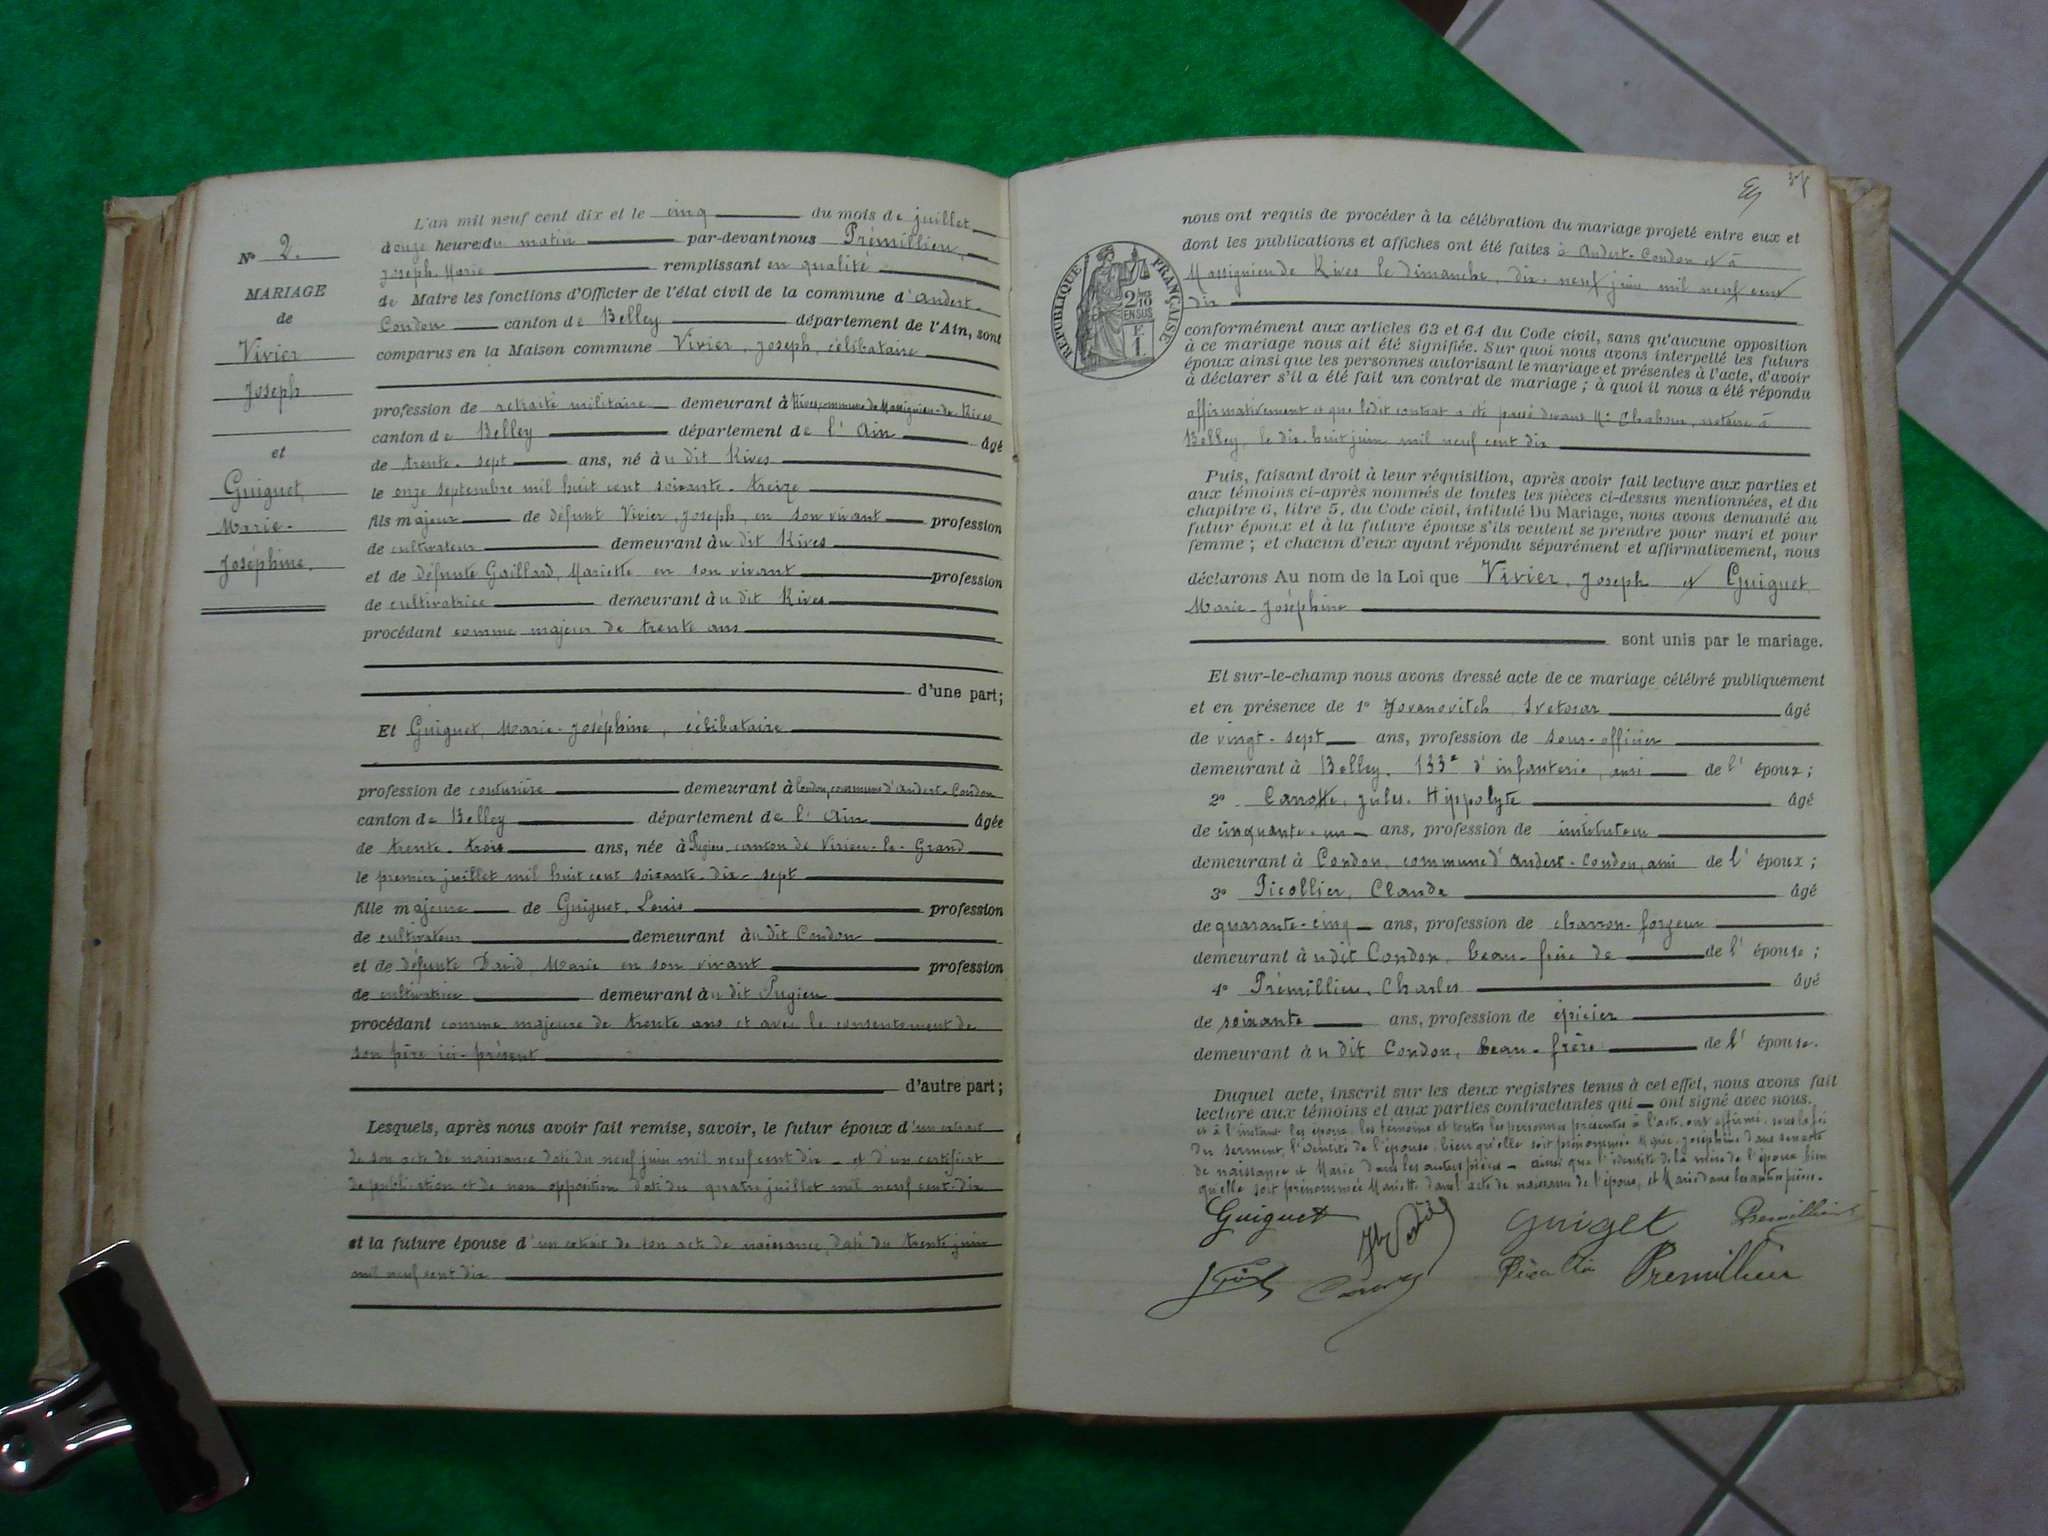 N° 2.
MARIAGE
de
Vivier
Joseph
et
Guiguet
Marie-
Joséphine.
L'an mil neuf cent dix et le cinq du mois de juillet
douze heure du matin par-devant nous Prémillieu,
Joseph Marie remplissant en qualité
de Maire les fonctions d'Officier de l'état civil de la commune d'Andert-
Condon canton de Belley département de l'Ain, sont
comparus en la Maison commune Vivier, Joseph, célibataire
profession de retraité militaire demeurant à Rives, commune de Massignieu-de Rives
canton de Belley département de l'Ain âgé
de trente-sept ans, né àu dit Rives
le onze septembre mil huit cent soixante-treize
fils majeur de défunt Vivier, Joseph, en son vivant profession
de cultivateur demeurant àu dit Rives
et de défunte Gaillard, Mariette en son vivant profession
de cultivatrice demeurant àu dit Rives
procédant comme majeur de trente ans
d'une part;
Et Guiguet, Marie-Joséphine, célibataire
profession de couturière demeurant à Condon, commune d'Andert-Condon
canton de Belley département de l'Ain âgée
de trente-trois ans, née à Pugieu, canton de Virieu-le-Grand
le premier juillet mil huit cent soixante-dix-sept
fille majeure de Guiguet, Louis profession
de cultivateur demeurant àu dit Condon
et de défunte David Marie en son vivant profession
de cultivatrice demeurant àu dit Pugieu
procédant comme majeure de trente ans et avec le consentement de
son père ici-présent
d'autre part;
Lesquels, après nous avoir fait remise, savoir, le futur époux d'un extrait
de son acte de naissance daté du neuf juin mil neuf cent dix - et d'un certificat
de publication et de non opposition daté du quatre juillet mil neuf cent dix
et la future épouse d'un extrait de son acte de naissance, daté du trente juin
mil neuf cent dix
37
RÉPUBLIQUE FRANÇAISE
2/10 EN SUS
1 F.
nous ont requis de procéder à la célébration du mariage projeté entre eux et
dont les publications et affiches ont été faites à Andert-Condon et à
Massignieu de Rives le dimanche, dix-neuf juin mil neuf cent
dix
conformément aux articles 63 et 64 du Code civil, sans qu'aucune opposition
à ce mariage nous ait été signifiée. Sur quoi nous avons interpellé les futurs
époux ainsi que les personnes autorisant le mariage et présentes à l'acte, d'avoir
à déclarer s'il a été fait un contrat de mariage; à quoi il nous a été répondu
affirmativement et que ledit contrat a été passé devant Me notaire à
Belley, le dix-huit juin mil neuf cent dix
Puis, faisant droit à leur réquisition, après avoir fait lecture aux parties et
aux témoins ci-après nommés de toutes les pièces ci-dessus mentionnées, et du
chapitre 6, titre 5, du Code civil, intitulé Du Mariage, nous avons demandé au
futur époux et à la future épouse s'ils veulent se prendre pour mari et pour
femme; et chacun d'eux ayant répondu séparément et affirmativement, nous
déclarons Au nom de la Loi que Vivier, Joseph et Guiguet
Marie-Joséphine
sont unis par le mariage.
Et sur-le-champ nous avons dressé acte de ce mariage célébré publiquement
et en présence de 1° Jovanovitch, Svetosar âgé
de vingt-sept ans, profession de sous-officier
demeurant à Belley, 133e d'infanterie, ami de l'époux;
2° Carrotte, Jules, Hippolyte âgé
de cinquante-un ans, profession de instituteur
demeurant à Condon, commune d'Andert-Condon, ami de l'époux;
3° Picollier, Claude âgé
de quarante-cinq ans, profession de charron-forgeur
demeurant àu dit Condon, beau-frère de de l'épouse;
4° Prémillieu, Charles âgé
de soixante ans, profession de épicier
demeurant àu dit Condon, beau-frère de l'épouse.
Duquel acte, inscrit sur les deux registres tenus à cet effet, nous avons fait
lecture aux témoins et aux parties contractantes qui ont signé avec nous.
et à l'instant les époux, les témoins et toutes les personnes présentes à l'acte, ont affirmé, sous la foi
du serment, l'identité de l'épouse, bien qu'elle soit prénommée Marie-Joséphine dans son acte
de naissance et Marie dans les autres pièces - ainsi que l'identité de la mère de l'époux bien
qu'elle soit prénommée Mariette dans l'acte de naissance de l'époux, et Marie dans les autres pièces.
Guiguet Guiget Premillieu
Premillieu